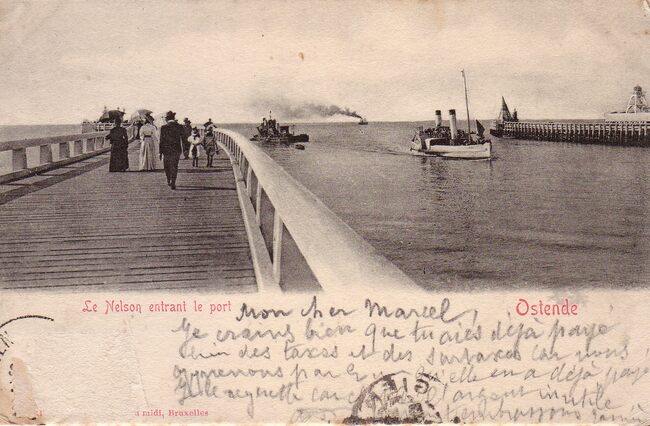 Le Nelson entrant le port
Ostende
Mon cher Marcel,
Je crains bien que tu aies déjà payé
des taxes et des surtaxes car nous
apprenons par qu'elle en a déjà payé
Je le regrette car l'argent inutile
t'embrassons
midi, Bruxelles